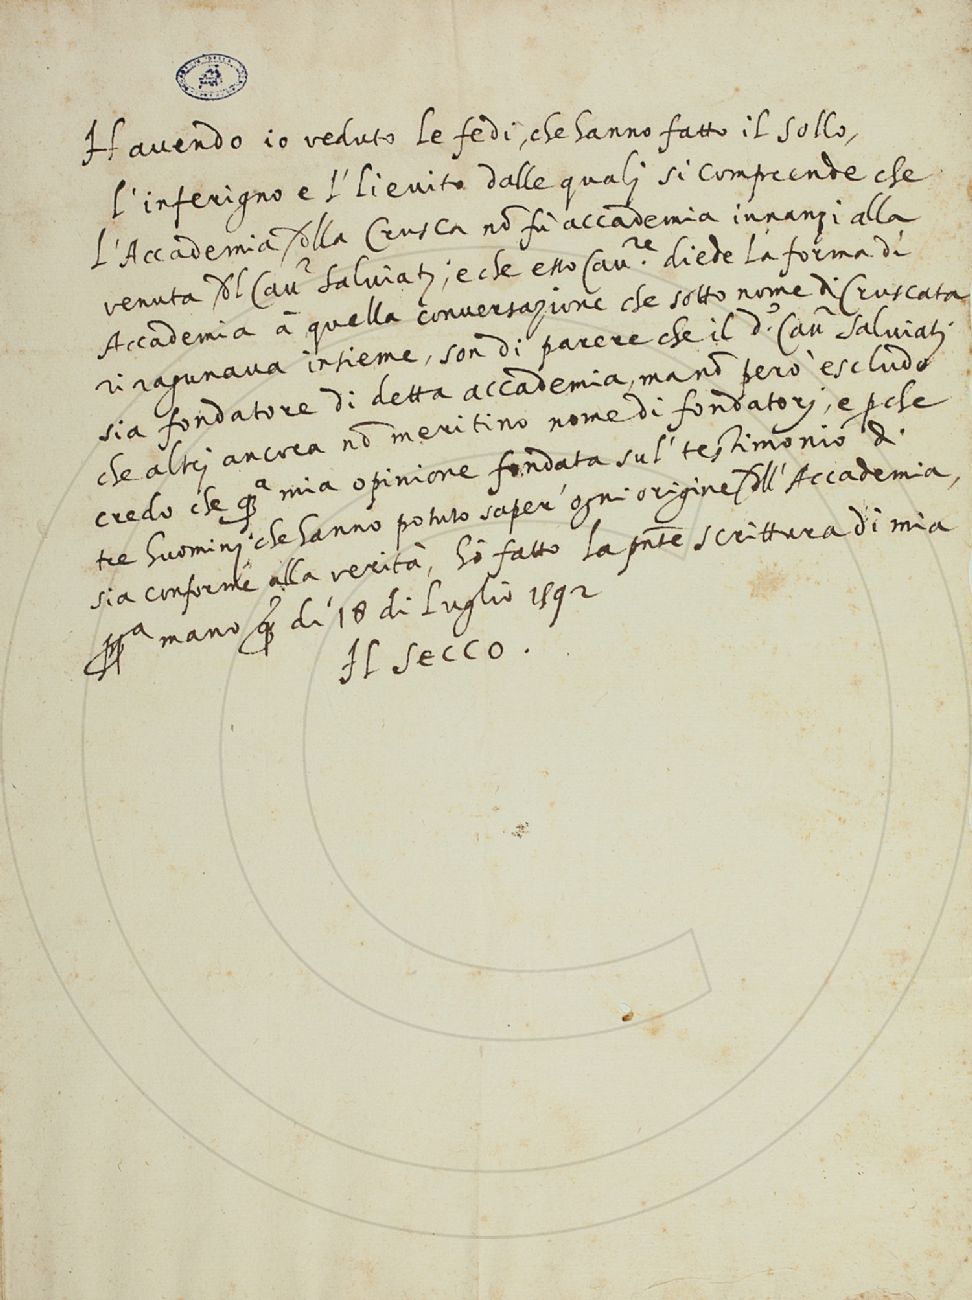 Havendo io veduto le fedi, che hanno fatto il Sollo,
l'inferigno e l' lievito dalle qualj si comprende che
l'Accademia dlla Crusca nō fù accademia innanzi alla
venuta dl Cavr Salviatj; e che esso Cavre. diede la forma di
Accademia à quella conversazione che sotto nome di Cruscata
si ragunava insieme, son di parere che il do. Cavr Salviatj
sia fondatore di detta accademia, ma nō però escludo
che altrj ancora nō meritino nome di fondatorj, e pche
credo che qa mia opinione fondata sul' testimonio di
tre huominj che hanno potuto saper' ogni origine dll' Accademia,
sia conforme alla verità, hò fatto la pnte scrittura di mia
ppa mano q dì 18 di Luglio 1592
Il Secco.